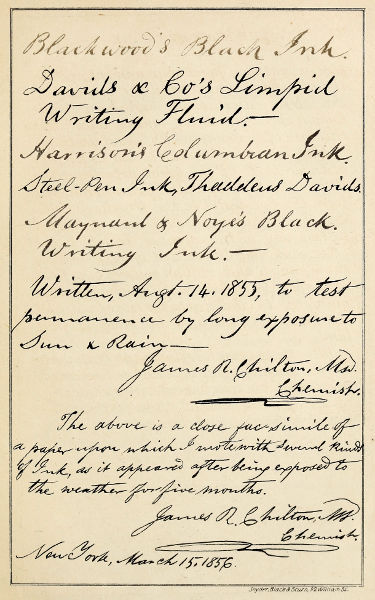 Blackwood's Black Ink.
Davids & Co's Limpid
Writing Fluid.—
Harrison's Columbian Ink.
Steel-Pen Ink, Thaddeus Davids.
Maynard & Noye's Black.
Writing Ink.—
Written, Augt. 14. 1855, to test
permanence by long exposure to
Sun & Rain—
James R. Chilton, MD.
Chemist.
The above is a close fac-simile of
a paper upon which I wrote with several kinds
of Ink, as it appeared after being exposed to
the weather for five months.
James R. Chilton, MD.
Chemist.
New York, March 15. 1856.
Snyder, Black & Sturn, 92 William St.